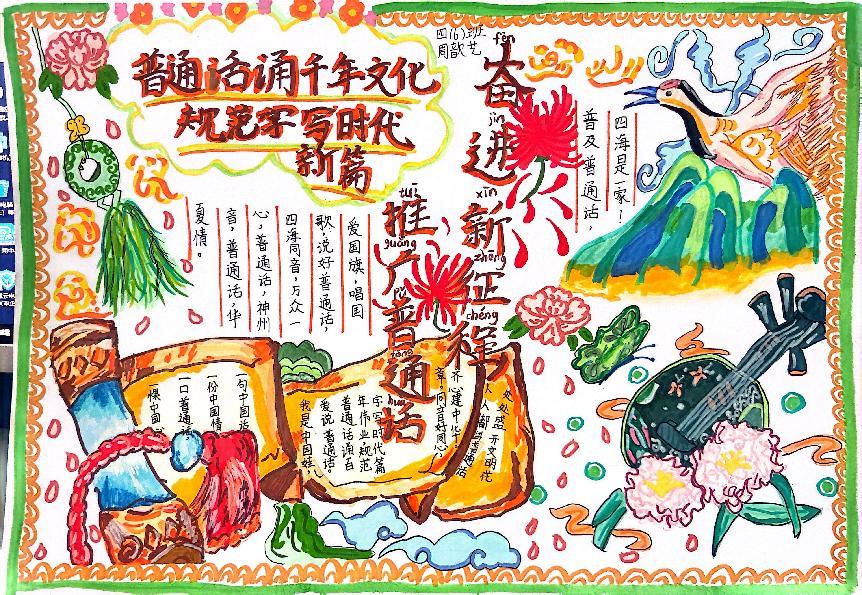 普通话诵千年文化
规范字写时代
新篇
四(6)班
周歆艺
fèn
奋
jìn
进
xīn
新
zhēng
征
chéng
程
tuī
推
guǎng
广
pǔ
普
tōng
通
huà
话
四海是一家！
普及普通话，
爱国旗，唱国
歌，说好普通话，
四海同音，万众一
心，普通话，神州
音，普通话，华
夏情。
处处盛开文明花
人人都说普通话
齐心建中华
音，同音好同心，
字写时代篇
年伟业规范
普通话诵百
爱说普通话。
我是中国娃，
一句中国话
一份中国情
一口普通话
一棵中国